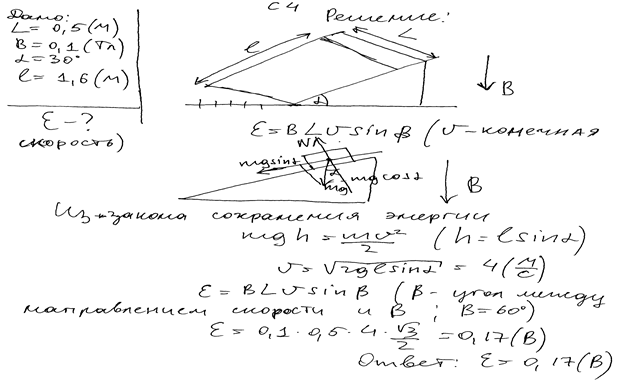 C4
Дано:
L = 0,5 (м)
B = 0,1 (Тл)
α = 30°
ℓ = 1,6 (м)
ε - ?
скорость)
Решение:
ℓ
L
α
B
ε = BLυ sin β (υ - конечная
N
mg sinα
α
mg cosα
mg
B
Из закона сохранения энергии
mgh = mυ²/2 (h = ℓ sinα)
υ = √2gℓsinα = 4 (м/с)
ε = BLυ sin β (β - угол между
направлением скорости и B ; B = 60°)
ε = 0,1 · 0,5 · 4 · √3/2 = 0,17 (В)
Ответ: ε = 0,17 (В)